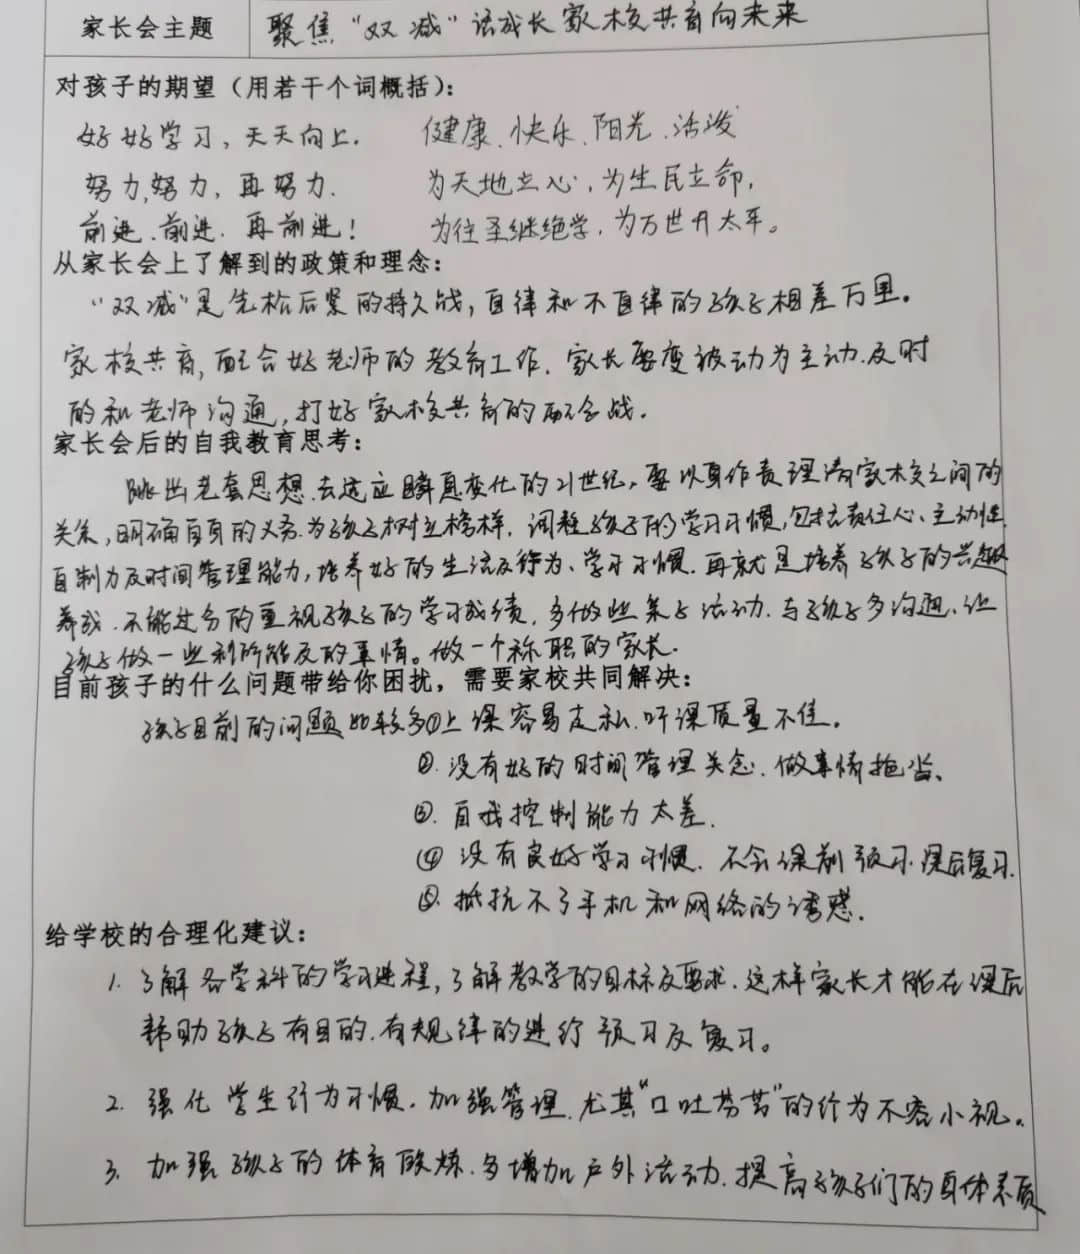 家长会主题 聚焦“双减”话成长 家校共育向未来
对孩子的期望（用若干个词概括）：
好好学习，天天向上. 健康、快乐、阳光、活泼
努力,努力，再努力. 为天地立心，为生民立命，
前进.前进.再前进！ 为往圣继绝学，为万世开太平。
从家长会上了解到的政策和理念：
“双减”是先松后紧的持久战，自律和不自律的孩子相差万里。
家校共育，配合好老师的教育工作. 家长要变被动为主动.及时
的和老师沟通，打好家校共育的配合战.
家长会后的自我教育思考：
跳出老套思想.去适应瞬息变化的21世纪，要以身作责理清家校之间的
关系，明确自身的义务.为孩子树立榜样. 调整孩子的学习习惯,包括责任心、主动性
自制力及时间管理能力，培养好的生活及行为、学习习惯. 再就是培养孩子的兴趣
养成. 不能过分的重视孩子的学习成绩，多做些亲子活动. 与孩子多沟通.让
孩子做一些利所能及的事情。做一个称职的家长.
目前孩子的什么问题带给你困扰，需要家校共同解决：
孩子目前的问题比较多①上课容易走私.听课质量不佳。
②. 没有好的时间管理关念. 做事情拖沓、
③. 自我控制能力太差.
④ 没有良好学习习惯. 不会课前预习.课后复习.
⑤. 抵抗不了手机和网络的诱惑.
给学校的合理化建议：
1. 了解各学科的学习进程，了解教学的目标及要求. 这样家长才能在课后
帮助孩子有目的.有规律的进行预习及复习。
2. 强化学生行为习惯. 加强管理.尤其“口吐芬芳”的行为不容小视。
3. 加强孩子的体育锻炼. 多增加户外活动. 提高孩子们的身体素质